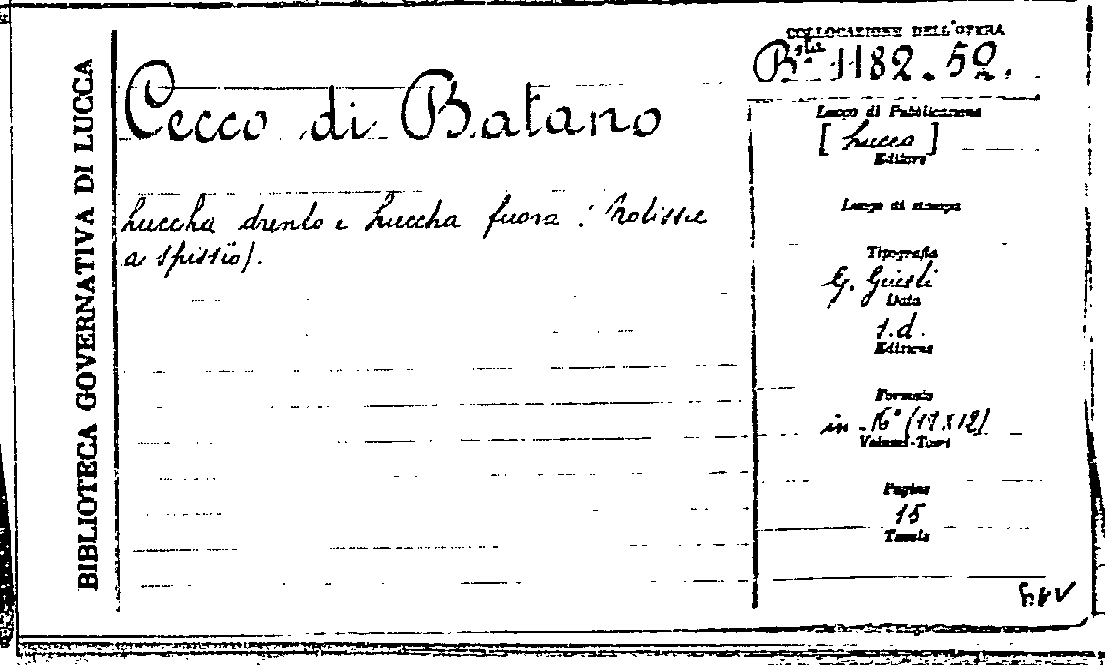 BIBLIOTECA GOVERNATIVA DI LUCCA
COLLOCAZIONE DELL'OPERA
B.sta 1182.52.
Cecco di Batano
Luccha drento e Luccha fuora (Notissie
a spissïo).
Luogo di Pubblicazione
[Lucca]
Editore
Luogo di stampa
Tipografia
G. Giusti
Data
s.d.
Edizione
Formato
in-16° (17x12)
Volumi-Tomi
Pagine
15
Tavole